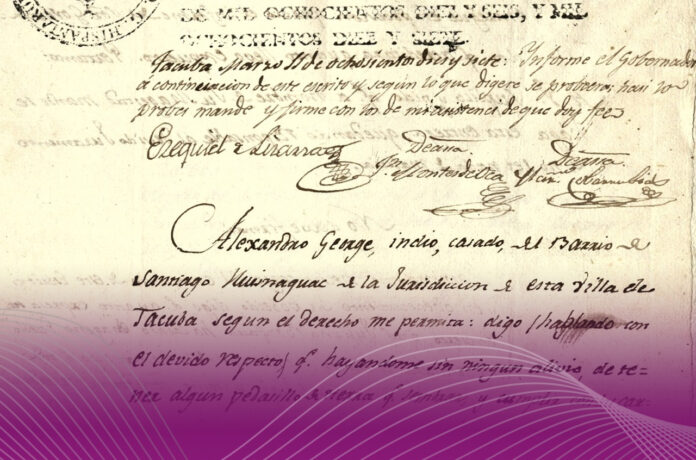 HISPANIARU
DE MIL OCHOCIENTOS DIEZ Y SEIS, Y MIL
OCHOCIENTOS DIEZ Y SIETE.
Tacuba Marzo 11 de ochosientos dies y siete: Informe el Gobernador
a continuacion de este escrito y segun lo que digere se probeera; hasi lo
probei mande y firme con los de mi asistencia de que doy fee
Ezequiel de Lizarraga
Deassa Deassa
Jn. Montesdeoca
Alexandro George, indio, casado, del Barrio de
Santiago Huinaguac de la Jurisdiccion de esta Villa de
Tacuba segun el derecho me permita: digo (hablando con
el devido respecto) q.e hayandome sin ningun alivio, de te=
ner algun pedasillo de tierra q.e sembrar, y cumplir con